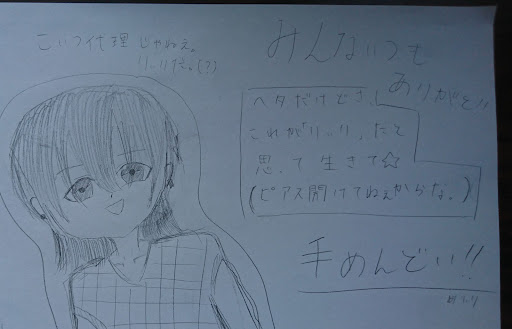 こいつ代理じゃねぇ。
りぃりだっ(?)
みんないつも
ありがとう!!
ヘタだけどさ、
これがりぃり、だと
思って生きて☆
(ピアス開けてねぇからな。)
手めんどい!!